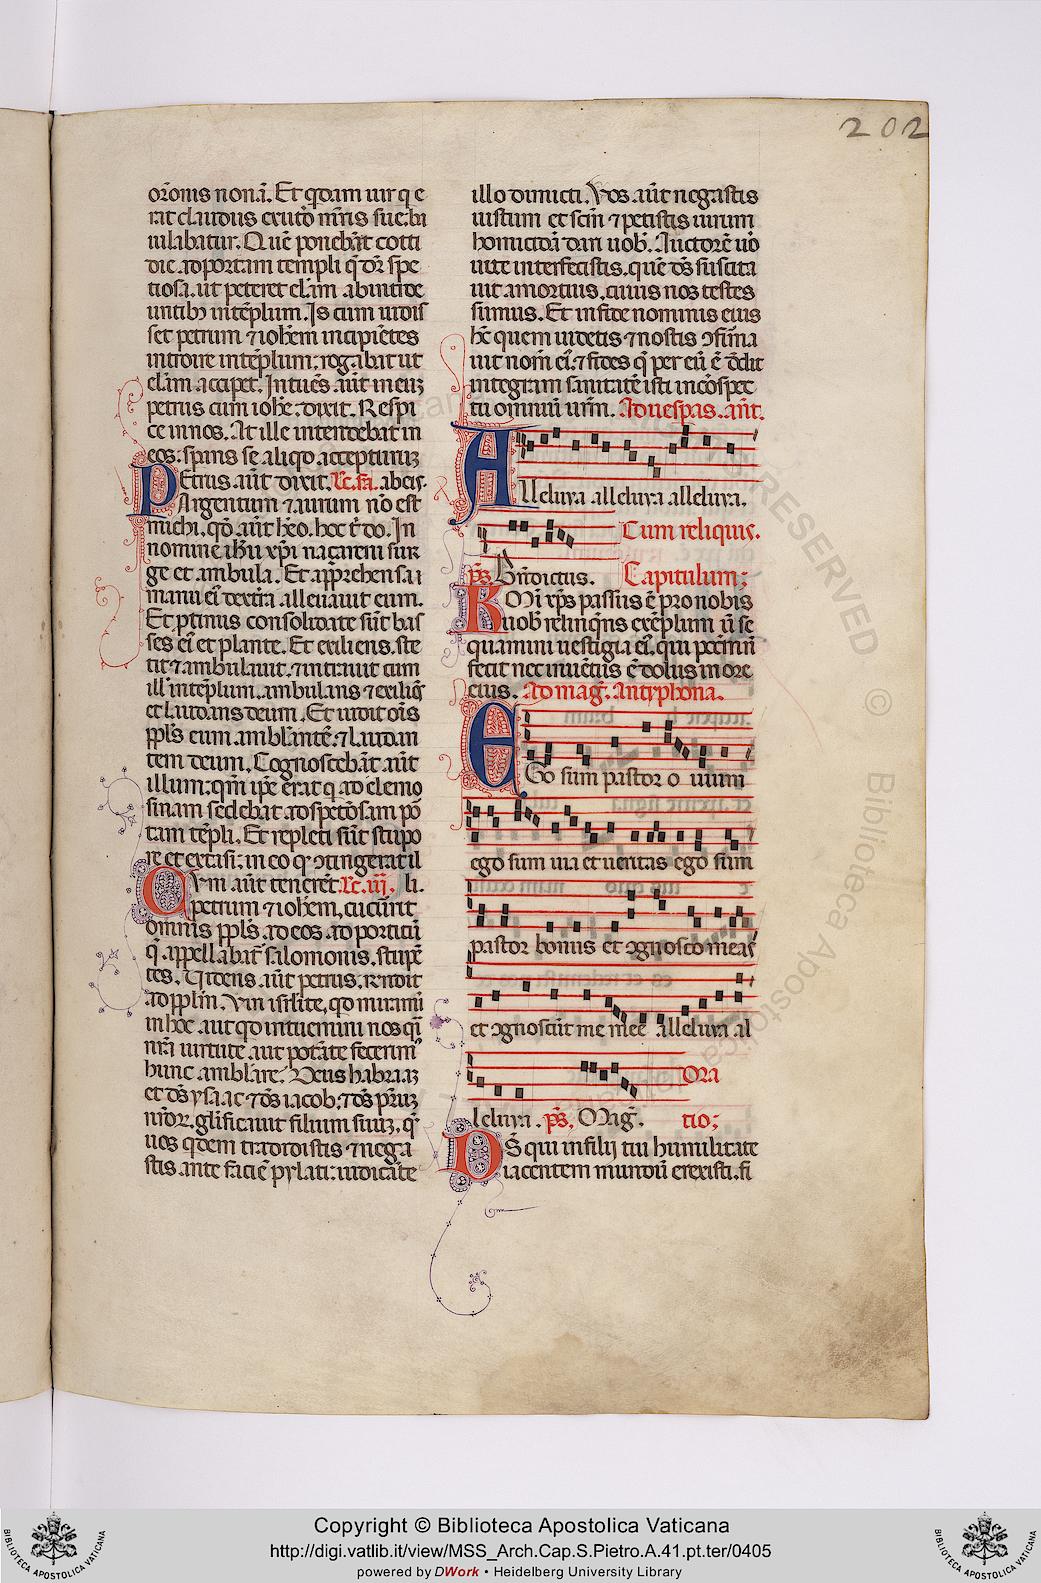 202
or̄onis nonā. Et qdam uir q e
rat claudus exutō mr̄is sue. ba
iulabatur. Quē ponebāt cotti
die ad portam templi q̄ dr̄ spe
tiosa. ut peteret elām ab intrōe
untibꝫ in tēplum. Is cum uidis
set petrum ⁊ ioħem incipiētes
introire in tēplum; rogabat ut
elām accipet. Intuēs aūt in euꝫ
petrus cum ioħe. dixit. Respi
ce in nos. At ille intendebat in
eos: sp̄ans se aliqd accepturuꝫ
Petrus aūt dixit. Lc. sa. ab eis.
Argentum ⁊ aurum nō est
michi. qd̄ aūt hēo. hoc t̄ do. In
nomine iħu xp̄i naçareni sur
ge et ambula. Et app̄rehensa i
manu eī dextra. alleuauit eum.
Et ptinus consolidate sūt bas
ses eī et plante. Et exiliens. ste
tit ⁊ ambulauit. ⁊ intrauit cum
ill' in tēplum. ambulans ⁊ exiliēs
et laudans deum. Et uidit oīs
pp̄ls eum amblantē. ⁊ laudan
tem deum. Cognoscebāt aūt
illum: qm̄ ipē erat q ad elemo
sinam sedebat. ad spetōsam por
tam tēpli. Et repleti sūt stupo
re et extasi; in eo qd̄ ꝯtingerat il
Cvm aūt tenerēt. Lc. iij. li.
petrum ⁊ ioħem, cucūrit
omnis pp̄ls ad eos. ad porticū
q̄ appellabat̄ salomonis. stupē
tes. Videns aūt petrus. rn̄dit
ad pp̄lm. Viri isr̄lite, qd miramī
in hoc. aut qd intuemini nos q̄i
nr̄a uirtute aut potāte fecerim'
hunc amblare? Deus habraaꝫ
et dс̄ ysaac ⁊ dс̄ iacob. ⁊ dс̄ pr̄uꝫ
nr̄or. glīficauit filium suuꝫ, q̄
uos qdem tradidistis ⁊ nega
stis ante faciē pylati: iudicāte
illo dimicti. Vos aūt negastis
iustum et scm̄ ⁊ petistis uirum
homicidā dari uob̄. Auctorē uō
uite interfecistis. quē dс̄ suscita
uit a mortuis, cuius nos testes
sumus. Et in fide nominis eius
hc̄ quem uidetis ⁊ nostis ꝯfirma
uit nom̄ eī. ⁊ fides q̄ per eū ē dedit
integram sanitatē isti in cōspec
tu omniū urm̄. Ad uesp̄as. aūt.
Alleluya alleluya alleluya.
Cum reliquis.
ps̄. Bn̄dictus. Capitulum;
Kmī xp̄s passus ē pro nobis
uob̄ relinqns exēplum ut se
quamini uestigia eī. qui pctm̄ nī
fecit nec inuētus ē dolus in ore
eius. Ad mag̃. Antyphona.
Ego sum pastor o uium
ego sum uia et ueritas ego sum
pastor bonus et ꝯgnosco meas
et ꝯgnoscūt me mee alleluya al
Ora
leluya. ps̄. Mag̃. tio;
Ds̄ qui in filij tui humilitate
iacentem mundū erexisti. fi
Copyright © Biblioteca Apostolica Vaticana
http://digi.vatlib.it/view/MSS_Arch.Cap.S.Pietro.A.41.pt.ter/0405
powered by DWork • Heidelberg University Library